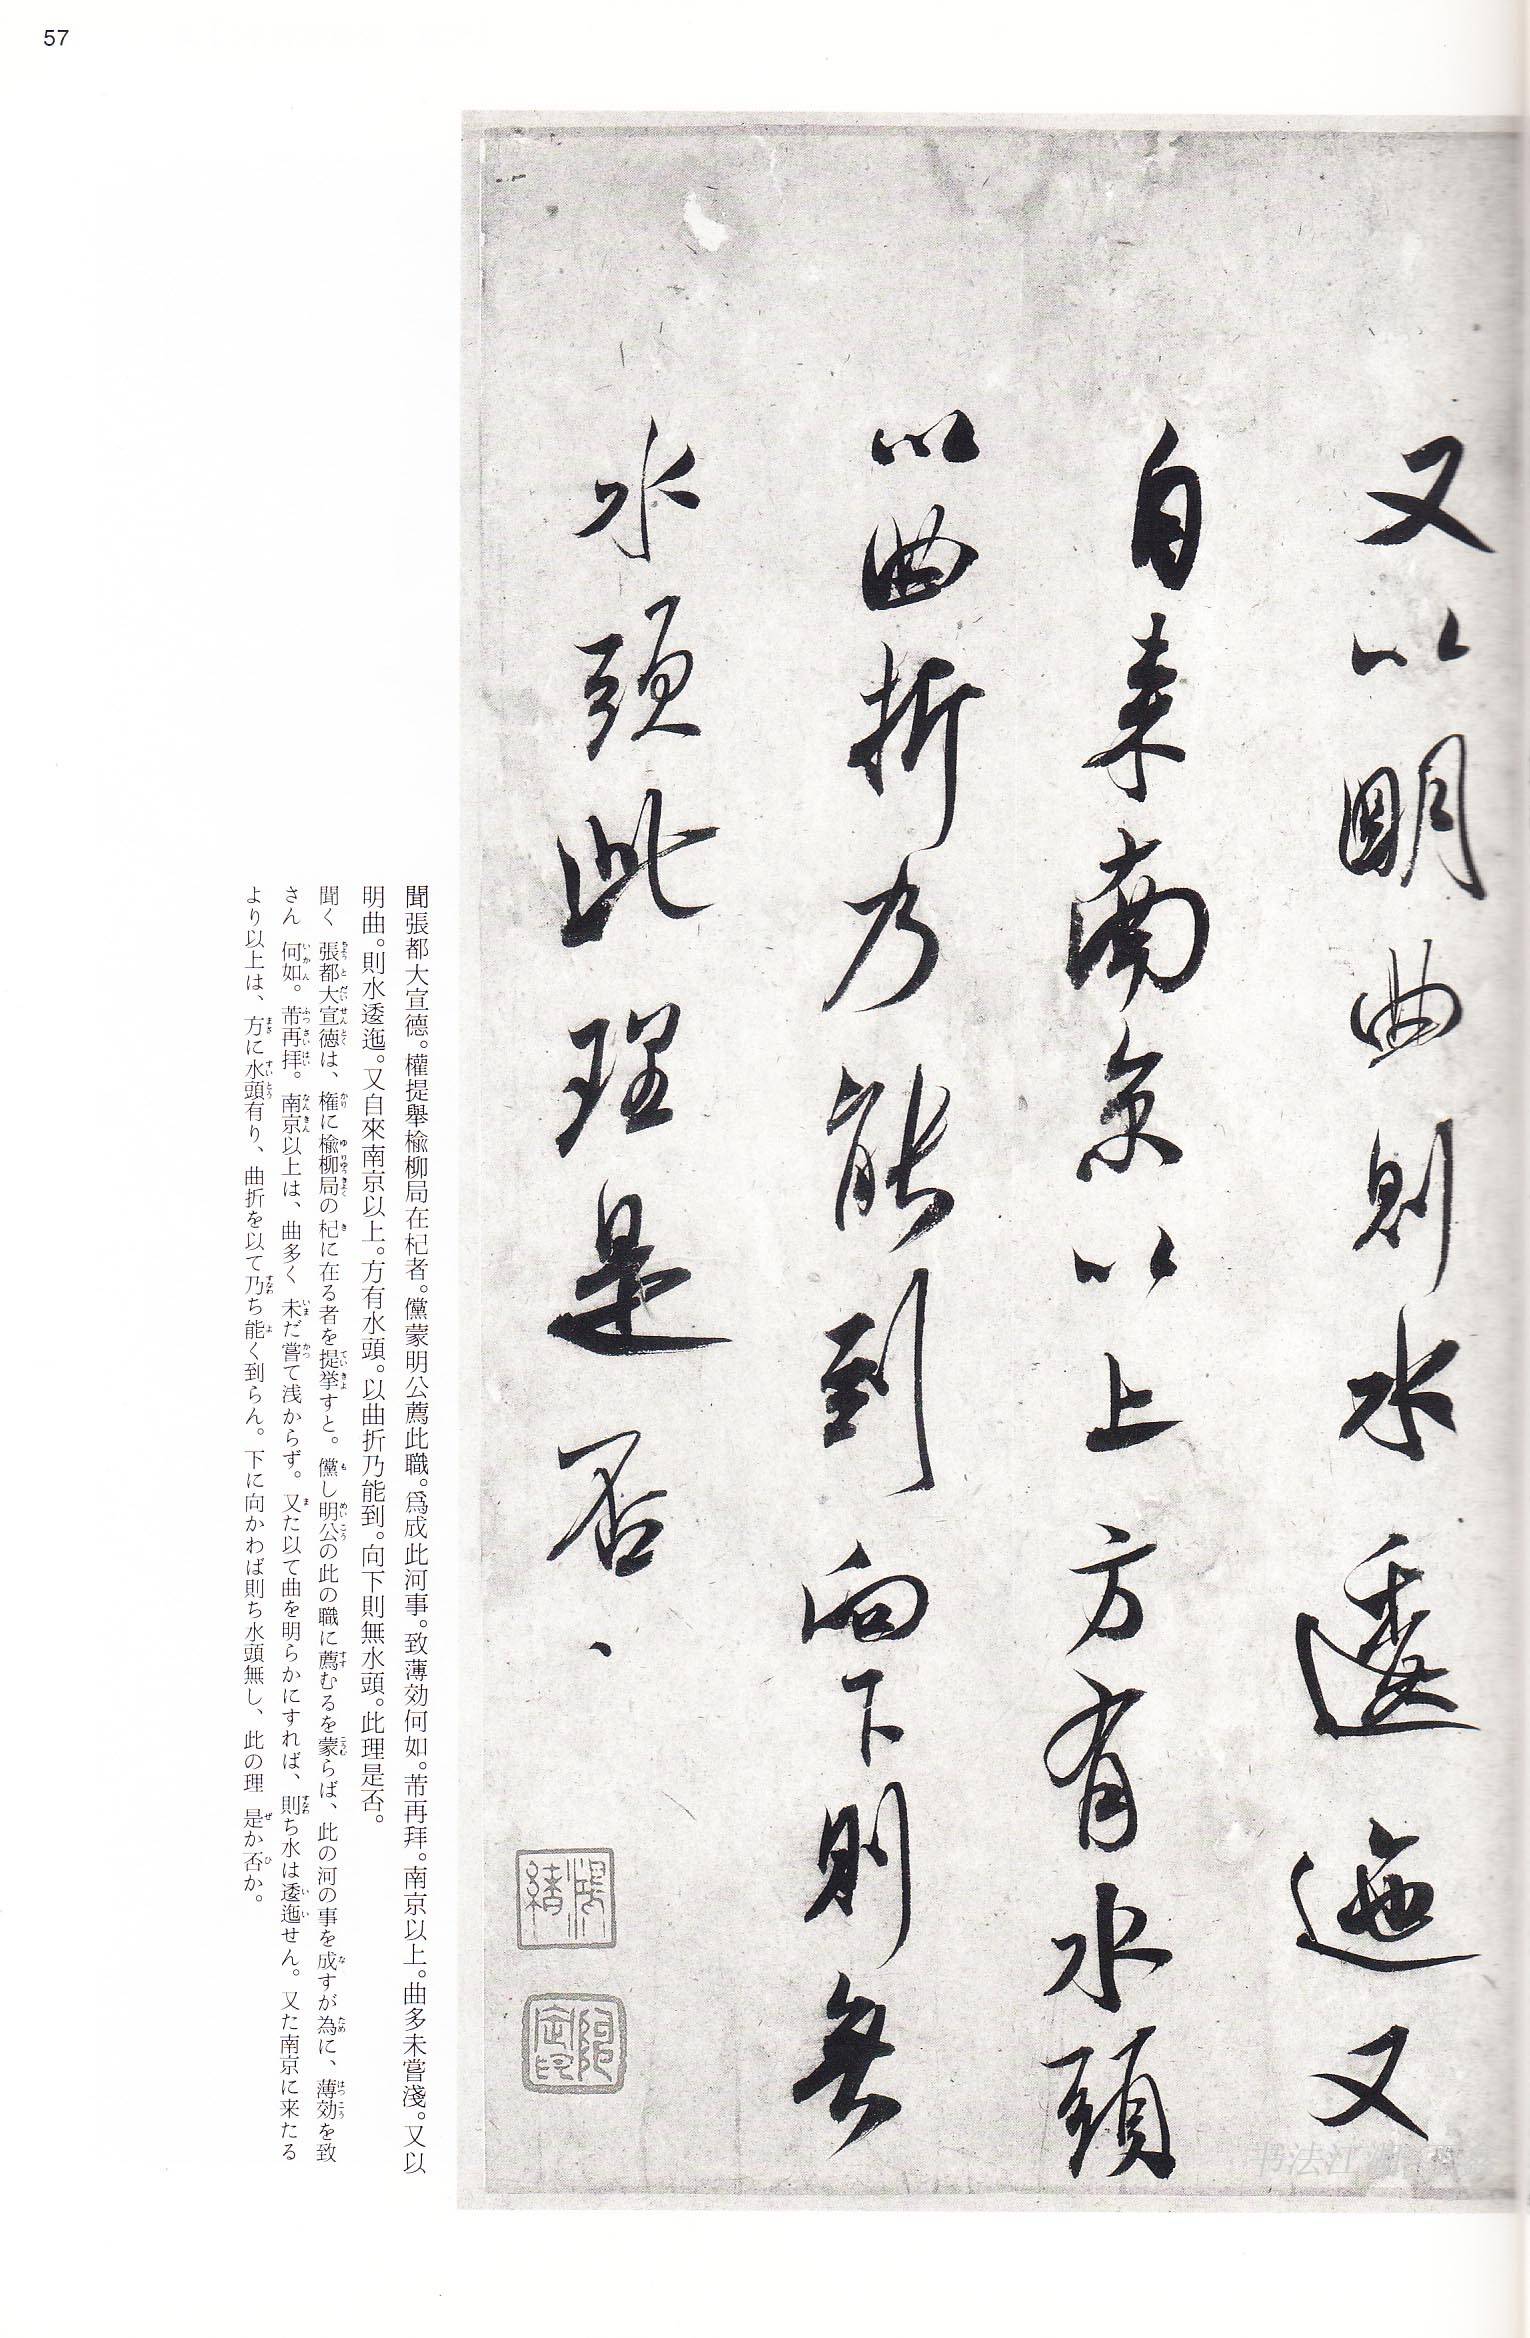 57
又以明曲則水逶迤又
自来南京以上方有水頭
以曲折乃能到向下則無
水頭此理是否、
聞張都大宣德。權提舉楡柳局在杞者。儻蒙明公薦此職。爲成此河事。致薄効何如。芾再拜。南京以上。曲多未嘗淺。又以
明曲。則水逶迤。又自來南京以上。方有水頭。以曲折乃能到。向下則無水頭。此理是否。
聞く 張都大宣德は、権に楡柳局の杞に在る者を提挙すと。儻し明公の此の職に薦むるを蒙らば、此の河の事を成すが為に、薄効を致
さん 何如。芾再拝。南京以上は、曲多く 未だ嘗て浅からず。又た以て曲を明らかにすれば、則ち水は逶迤せん。又た南京に来たる
より以上は、方に水頭有り、曲折を以て乃ち能く到らん。下に向かわば則ち水頭無し、此の理 是か否か。
书法江湖